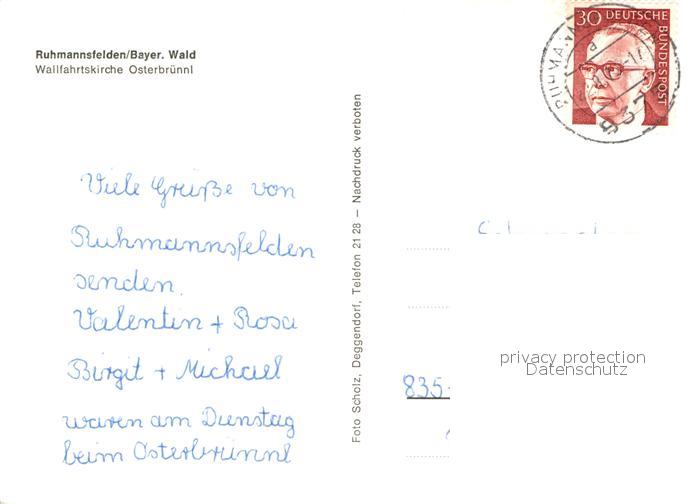 Ruhmannsfelden/Bayer. Wald
Wallfahrtskirche Osterbrünnl
30 DEUTSCHE
BUNDESPOST
RUHMANN
Viele Grüße von
Ruhmannsfelden
senden.
Valentin + Rosa
Birgit + Michael
waren am Dienstag
beim Osterbrünnl
Foto Scholz, Deggendorf, Telefon 21 28 — Nachdruck verboten
835-
privacy protection
Datenschutz